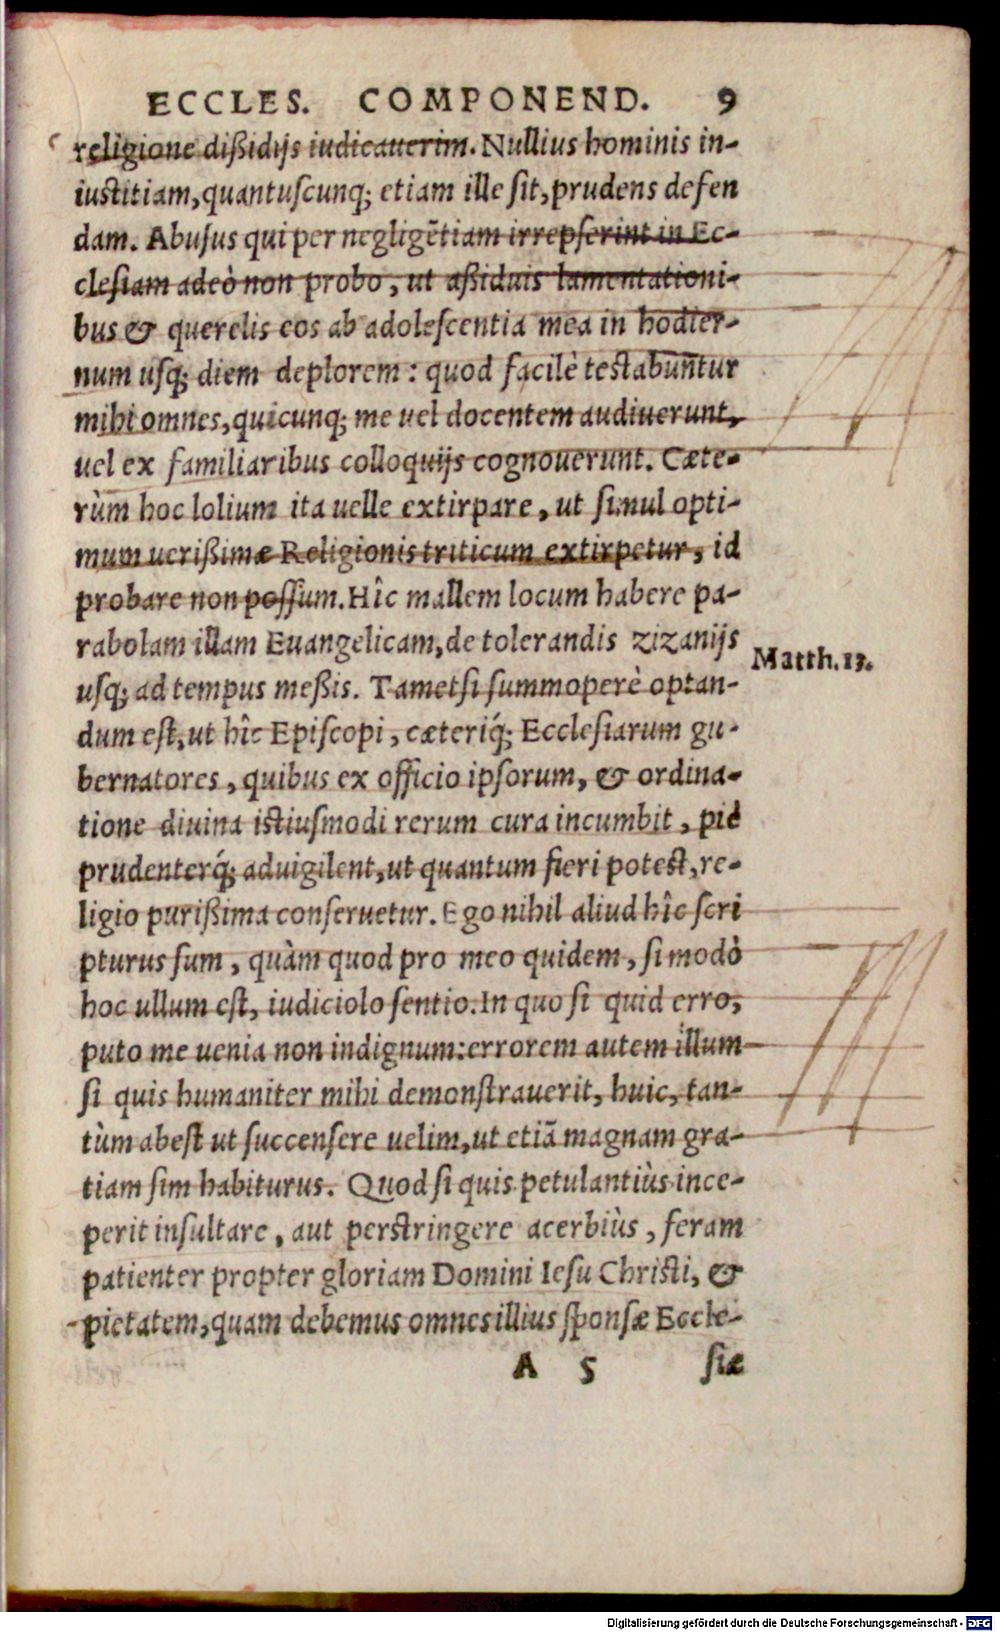 ECCLES. COMPONEND. 9
religione dißidijs iudicauerim. Nullius hominis in-
iustitiam, quantuscunq; etiam ille sit, prudens defen
dam. Abusus qui per negligẽtiam irrepserint in Ec-
clesiam adeò non probo, ut aßiduis lamentationi-
bus & querelis eos ab adolescentia mea in hodier-
num usq; diem deplorem: quod facilè testabun̄tur
mihi omnes, quicunq; me uel docentem audiuerunt,
uel ex familiaribus colloquijs cognouerunt. Cæte-
rùm hoc lolium ita uelle extirpare, ut simul opti-
mum uerißimæ Religionis triticum extirpetur, id
probare non possum. Hîc mallem locum habere pa-
rabolam illam Euangelicam, de tolerandis zizanijs
Matth. 13.
usq; ad tempus meßis. Tametsi summoperè optan-
dum est, ut hîc Episcopi, cæteriq́; Ecclesiarum gu-
bernatores, quibus ex officio ipsorum, & ordina-
tione diuina istiusmodi rerum cura incumbit, piè
prudenterq́; aduigilent, ut quantum fieri potest, re-
ligio purißima conseruetur. Ego nihil aliud hîc scri
pturus sum, quàm quod pro meo quidem, si modò
hoc ullum est, iudiciolo sentio. In quo si quid erro,
puto me uenia non indignum: errorem autem illum
si quis humaniter mihi demonstrauerit, huic, tan-
tùm abest ut succensere uelim, ut etiã magnam gra-
tiam sim habiturus. Quod si quis petulantiùs ince-
perit insultare, aut perstringere acerbiùs, feram
patienter propter gloriam Domini Iesu Christi, &
pietatem, quam debemus omnes illius sponsæ Eccle-
A 5 siæ
Digitalisierung gefördert durch die Deutsche Forschungsgemeinschaft - DFG